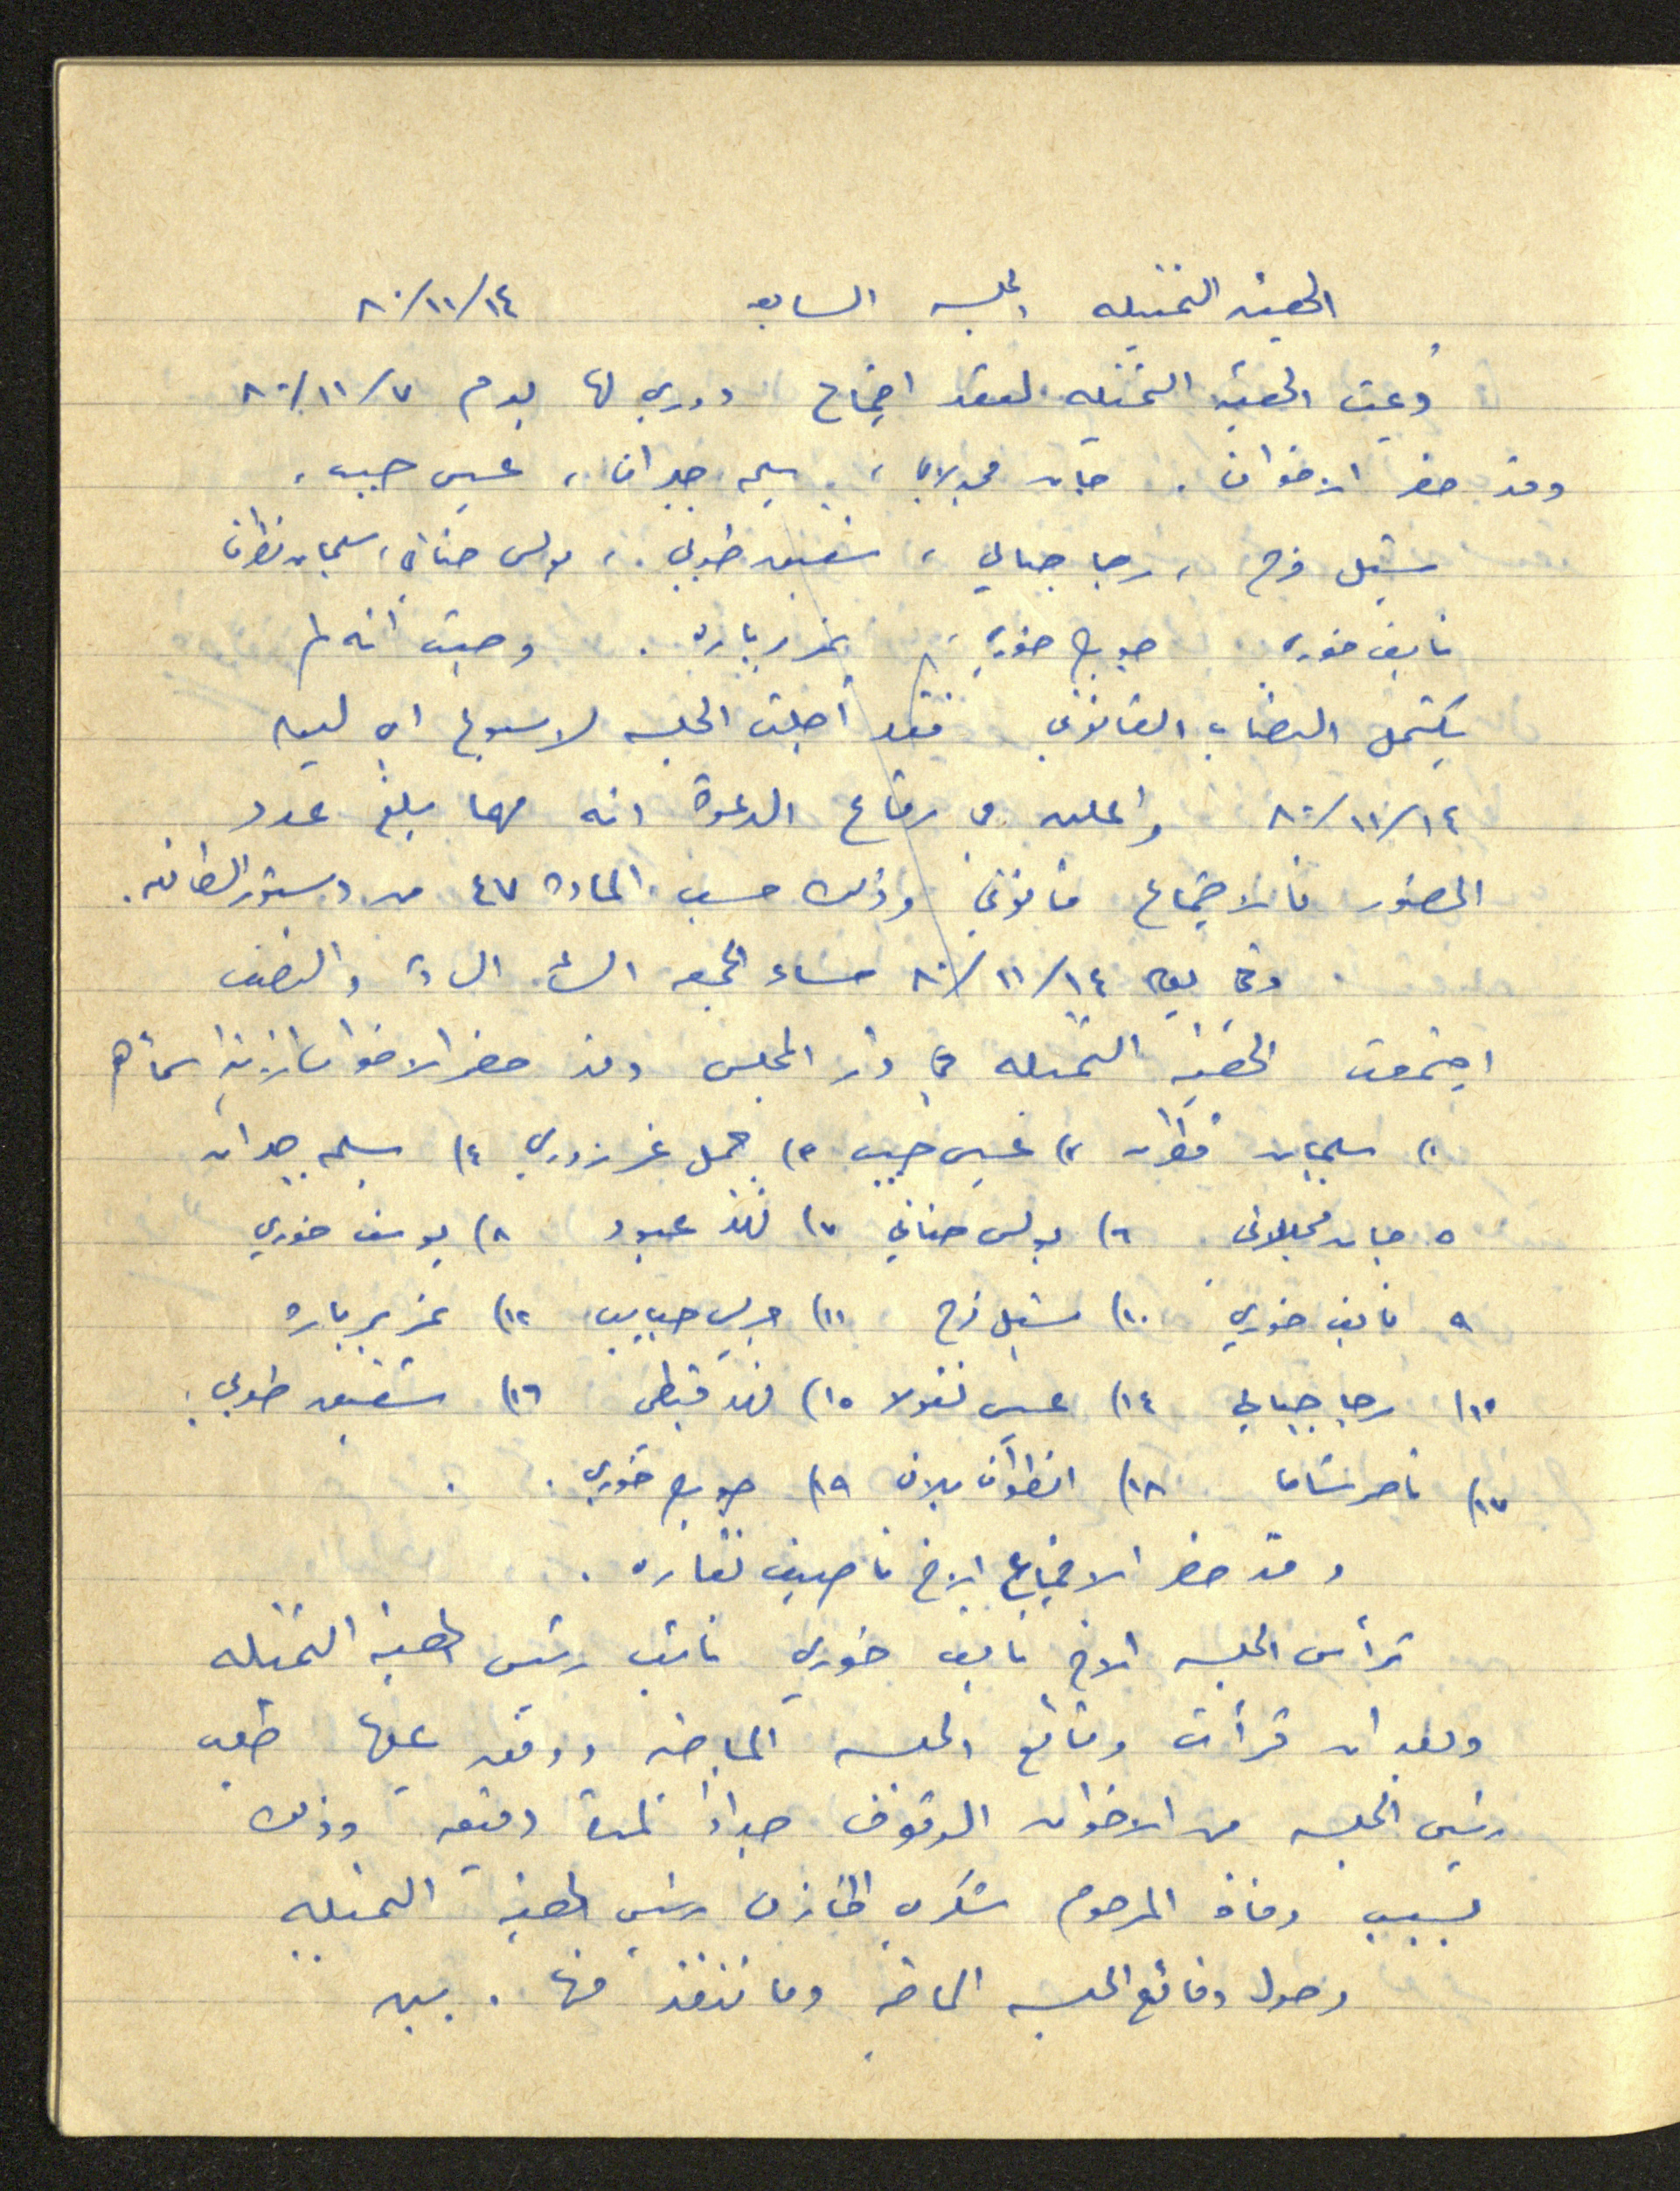 الهيئة التمثيليه الجلسه السابعه ٨٠/١١/١٤
دُعيت الهيئة التمثيليه لعقد اجتماع دوري لها يوم ٨٠/١١/٧
وقد حضر الاخوان. جان مجدلاني، سليم جبران، عيسى حبيب،
شبل فرح، رجا جبالي، شفيق طوبي، بولس حناني، سليمان قطران
نايف خوري جورج خوري، نمر بياره. وحيث انه لم
يكتمل النصاب القانوني فقد أُجلت الجلسه لاسبوع اي ليوم
٨٠/١١/١٤ واعلن في رقاع الدعوة انه مهما بلغ عدد
الحضور فالاجتماع قانوني وذلك حسب المادة ٤٧ من دستور الطائفه.
وفي يوم ٨٠/١١/١٤ مساء الجمعه الساعة السادسة والنصف
اجتمعت الهيئة التمثيله في دار المجلس وقد حضر الاخوان الاتية اسماؤهم
١) سليمان قطران ٢) عيسى حبيب ٣) جميل غرزوزي ٤) سليم جبران
٥ جان مجدلاني ٦) بولس حناني ٧) فهد عبود ٨) يوسف خوري
٩ نايف خوري ١٠) شبل فرح ١١) جريس حبايب ١٢) نمر بياره
١٣) رجا جبالي ١٤) عيسى نقولا ١٥) فهد قبطي ١٦) شفيق طوبي.
١٧) ناصر شاما ١٨) انطوان بلان ١٩) جورج خوري.
وقد حضر الاجتماع الاخ ناصيف نقاره.
ترأس الجلسه الاخ نايف خوري نائب رئيس الهيئة التمثيله
وبعد ان قرأت وقائع الجلسه الماضيه ووفق عليها طلب
رئيس الجلسه من الاخوان الوقوف حدادا لمدة دقيقه وذلك
بسبب وفاة المرحوم شكري الخازن رئيس الهيئة التمثيليه
وحول وقائع الجلسه الماضيه وما نُفذ منها. بين